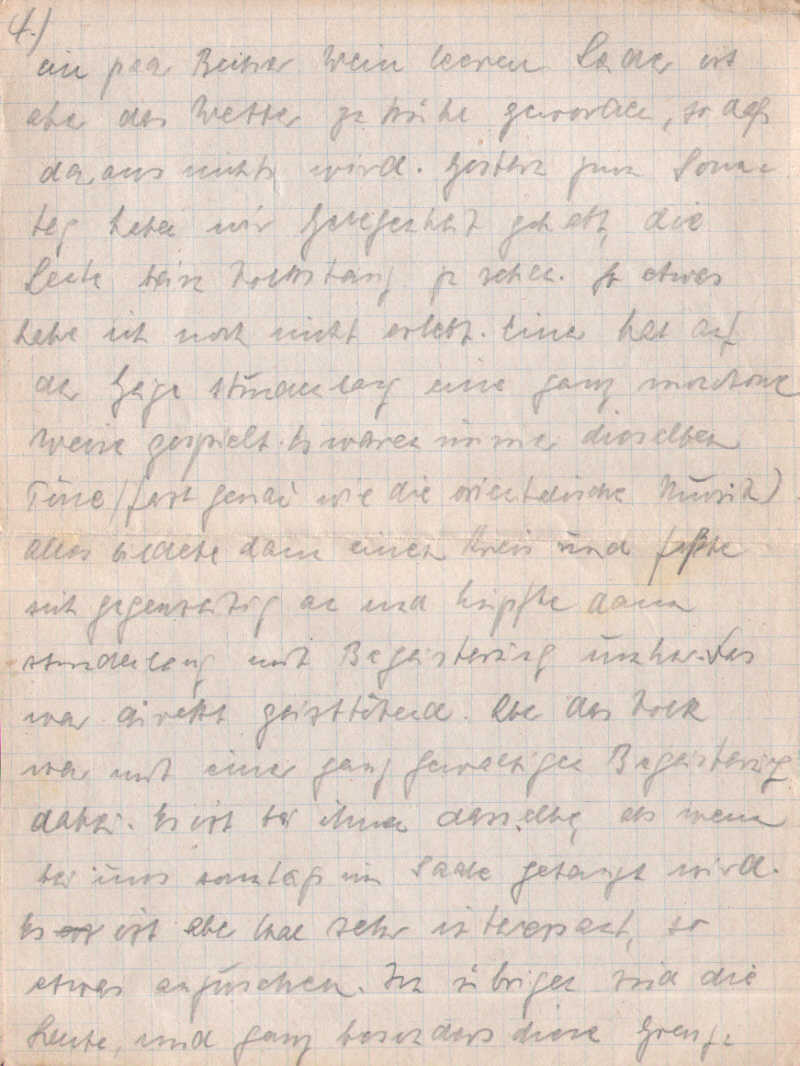 4.)
ein paar Becher Wein leeren. Leider ist
aber das Wetter zu trübe geworden, so daß
daraus nichts wird. Gestern zum Sonn-
tag haben wir Gelegenheit gehabt, die
Leute beim Volkstanz zu sehen. So etwas
habe ich noch nicht erlebt. Einer hat auf
der Geige stundenlang eine ganz monotone
Weise gespielt. Es waren immer dieselben
Töne (fast genau wie die orientalische Musik)
alles bildete dann einen Kreis und faßte
sich gegenseitig an und hüpfte dann
stundenlang mit Begeisterung umher. Das
war direkt geisttötend. Aber das Volk
war mit einer ganz gewaltigen Begeisterung
dabei. Es ist bei ihnen dasselbe, als wenn
bei uns sonntags im Saale getanzt wird.
Es ist aber mal sehr interessant, so
etwas anzusehen. Im übrigen sind die
Leute, und ganz besonders diese Grenz-